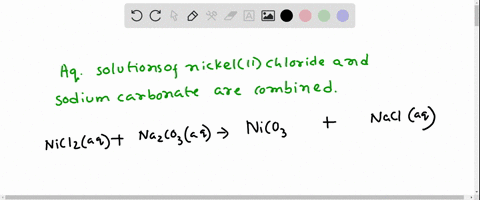 Aq. solutions of nickel(11) chloride and
sodium carbonate are combined.
NiCl2(aq) + Na2CO3(aq) → NiCO3 + NaCl (aq)